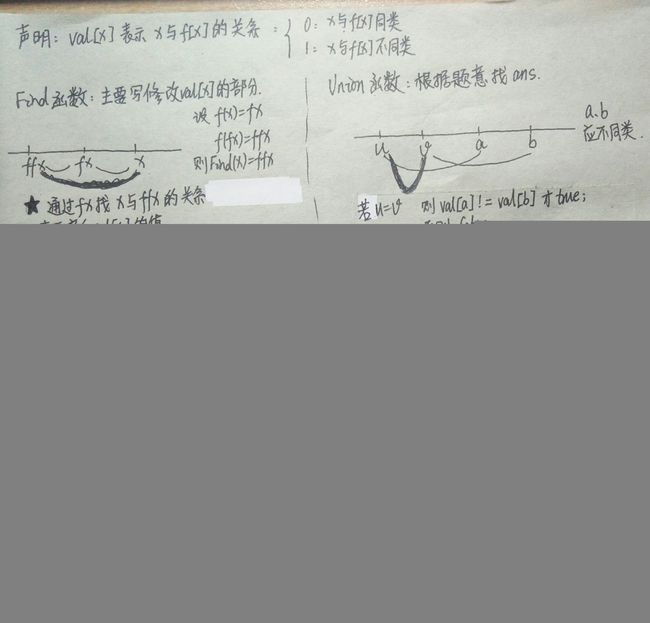 声明：val[x] 表示 x与f[x]的关系：{ 0：x与f[x]同类
1：x与f[x]不同类
Find函数：主要写修改val[x]的部分.
设 f(x)=fx
f(fx)=ffx
则Find(x)=ffx
ffx fx x
★ 通过fx找 x与ffx的关系
Union函数：根据题意找ans.
a.b
应不同类.
u v a b
若u=v 则val[a]!=val[b]才true;